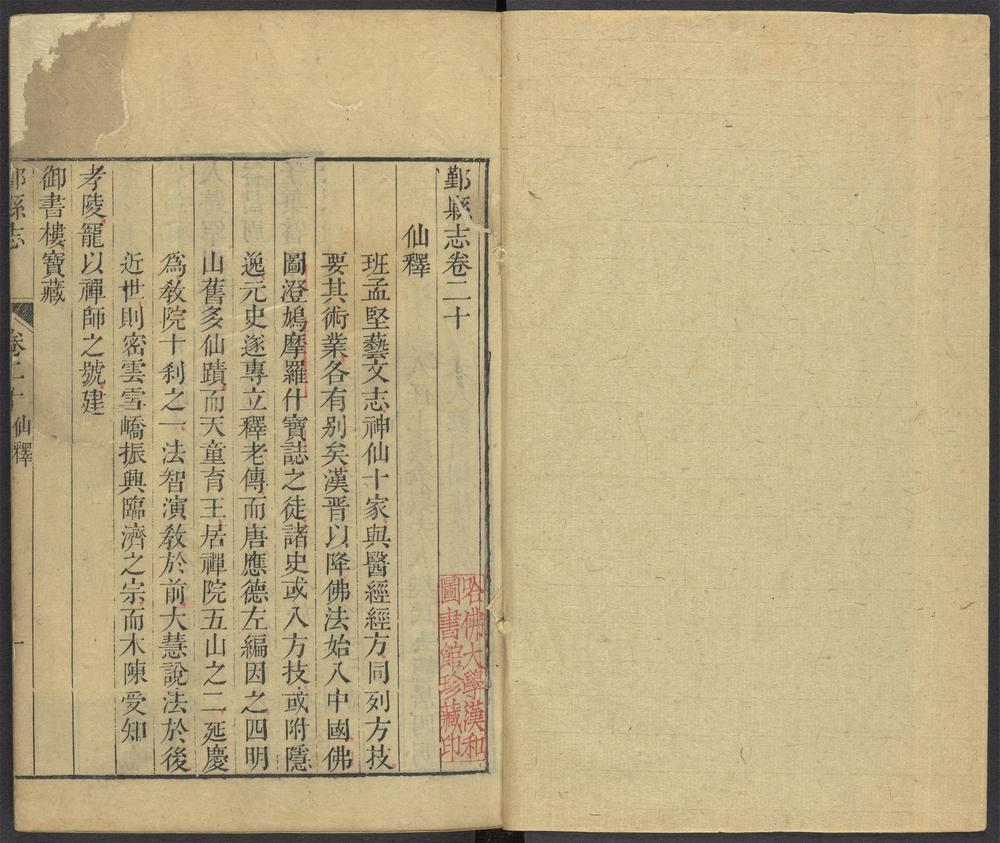 鄞縣志卷二十
仙釋
班孟堅藝文志神仙十家與醫經經方同列方技
要其術業各有別矣漢晉以降佛法始入中國佛
圖澄鳩摩羅什寶誌之徒諸史或入方技或附隱
逸元史遂專立釋老傳而唐應德左編因之四明
山舊多仙蹟而天童育王居禪院五山之二延慶
爲教院十刹之一法智演教於前大慧說法於後
近世則密雲雪嶠振興臨濟之宗而木陳受知
孝陵寵以禪師之號建
御書樓寶藏
鄞縣志
卷二十 仙釋
一
哈佛大學漢和
圖書館珍藏印